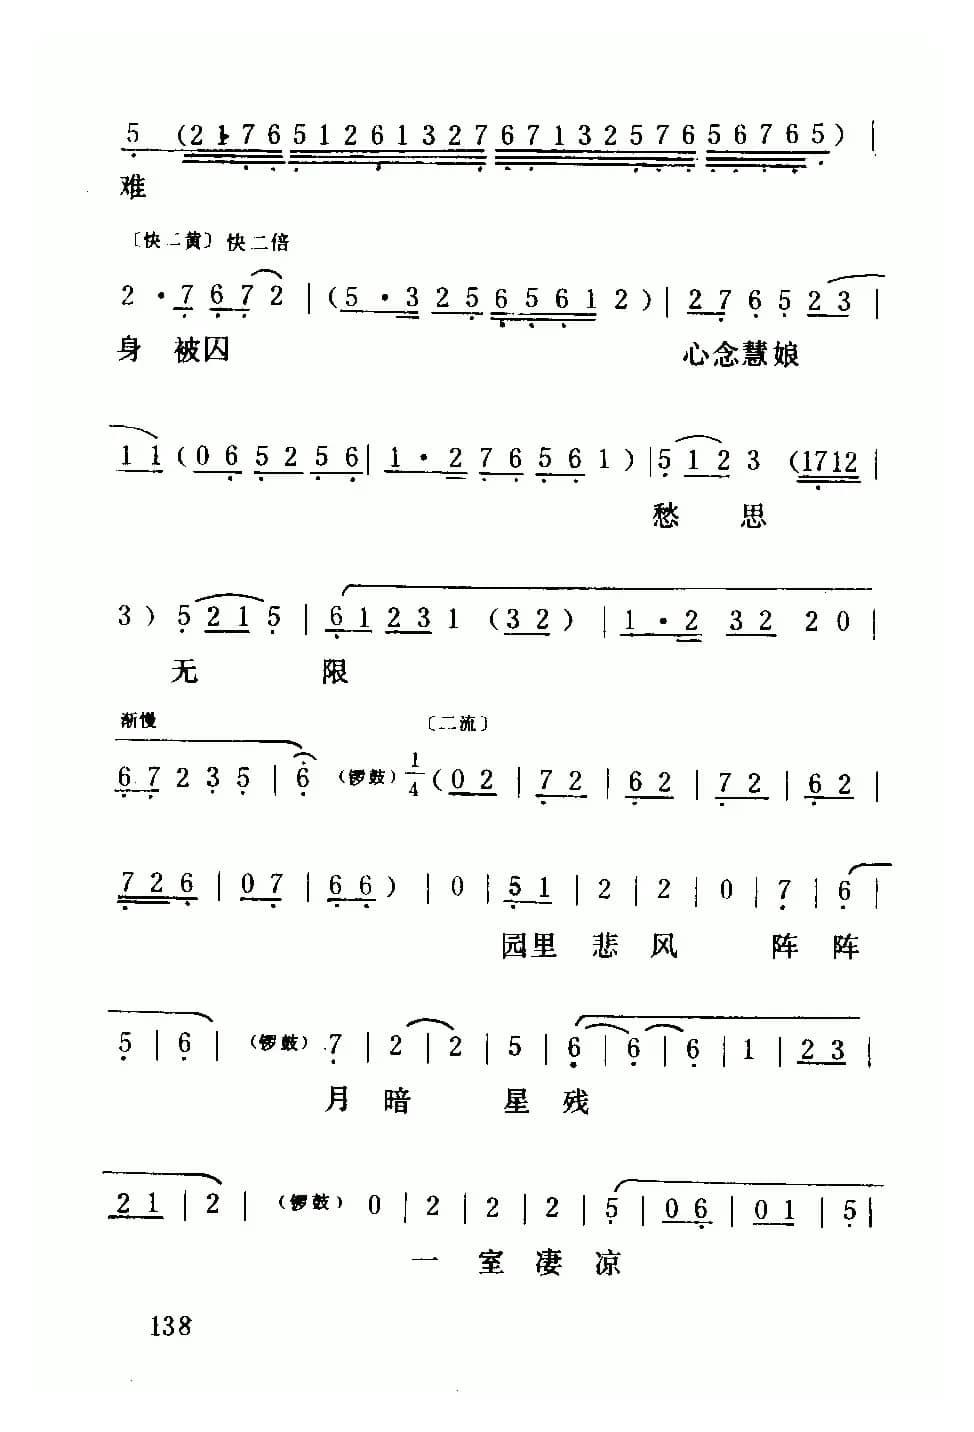 5 (2 1 7 6 5 1 2 6 1 3 2 7 6 7 1 3 2 5 7 6 5 6 7 6 5) |
难
〔快二黄〕快二倍
2 · 7 6 7 2 | (5 · 3 2 5 6 5 6 1 2) | 2 7 6 5 2 3 |
身 被囚 心念慧娘
1 1 (0 6 5 2 5 6 | 1 · 2 7 6 5 6 1) | 5 1 2 3 (1712 |
愁 思
3) 5 2 1 5 | 6 1 2 3 1 (3 2) | 1 · 2 3 2 2 0 |
无 限
渐慢 〔二流〕
6 7 2 3 5 | 6 (锣鼓) 1/4 (0 2 | 7 2 | 6 2 | 7 2 | 6 2 |
7 2 6 | 0 7 | 6 6) | 0 | 5 1 | 2 | 2 | 0 | 7 | 6 |
园里 悲 风 阵 阵
5 | 6 | (锣鼓) 7 | 2 | 2 | 5 | 6 | 6 | 6 | 1 | 2 3 |
月 暗 星 残
2 1 | 2 | (锣鼓) 0 | 2 | 2 | 2 | 5 | 0 6 | 0 1 | 5 |
一 室 凄 凉
138